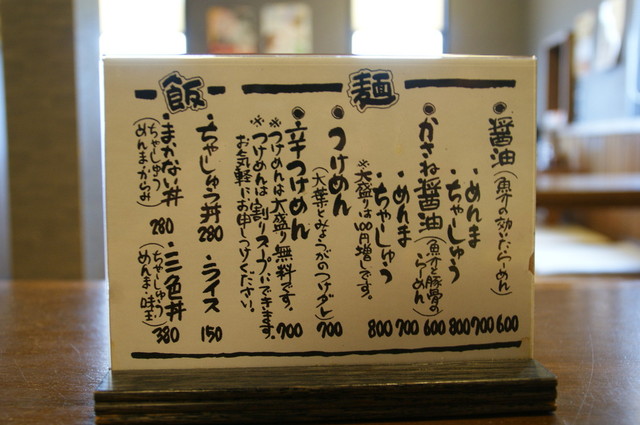 麺
醤油(魚介の効いたらーめん) 600
めんま 700
ちゃしゅう 800
かさね醤油(魚介と豚骨のらーめん) 600
めんま 700
ちゃしゅう 800
※大盛りは100円増しです。
つけめん(大葉とみょうがのつけダレ) 700
辛つけめん 700
※つけめんは大盛り無料です。
※つけめんは割りスープいできます。
お気軽にお申しつけください。
飯
ちゃしゅう丼 280
・ライス 150
・まかない丼(ちゃしゅうめんまからみ) 280
・三色丼(ちゃしゅうめんま・味玉) 380